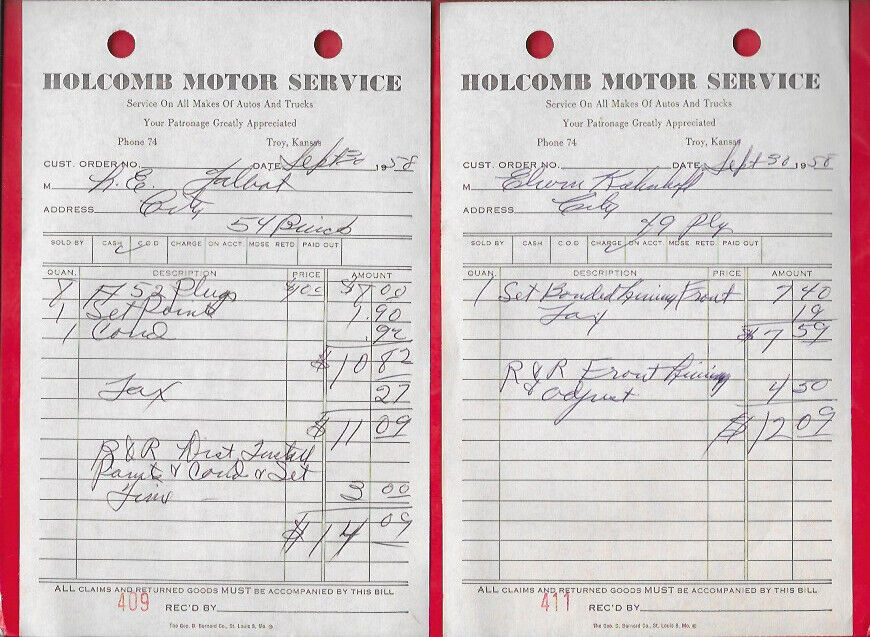 HOLCOMB MOTOR SERVICE
Service On All Makes Of Autos And Trucks
Your Patronage Greatly Appreciated
Phone 74 Troy, Kansas
CUST. ORDER NO. DATE Sept 30 1958
M R. E. Talbot
ADDRESS City
54 Buick
SOLD BY CASH C.O.D CHARGE ON ACCT MDSE RETD PAID OUT
QUAN. DESCRIPTION PRICE AMOUNT
8 52 Plugs 1.00 $8 00
1 Set Points 1.90
1 Cond .92
$10 82
Tax 27
$11 09
R & R Dist Install
Points & Cond & Set
Time 3 00
$14 09
ALL CLAIMS AND RETURNED GOODS MUST BE ACCOMPANIED BY THIS BILL
409 REC'D BY
The Geo. D. Barnard Co., St. Louis 8, Mo.
HOLCOMB MOTOR SERVICE
Service On All Makes Of Autos And Trucks
Your Patronage Greatly Appreciated
Phone 74 Troy, Kansas
CUST. ORDER NO. DATE Sept 30 1958
M Elwin
ADDRESS City
49 Ply
SOLD BY CASH C.O.D CHARGE ON ACCT MDSE RETD PAID OUT
QUAN. DESCRIPTION PRICE AMOUNT
1 Set Bonded Lining Front 7 40
Tax 19
$7 59
R & R Front Lining
& Adjust 4 50
$12 09
ALL CLAIMS AND RETURNED GOODS MUST BE ACCOMPANIED BY THIS BILL
411 REC'D BY
The Geo. D. Barnard Co., St. Louis 8, Mo.